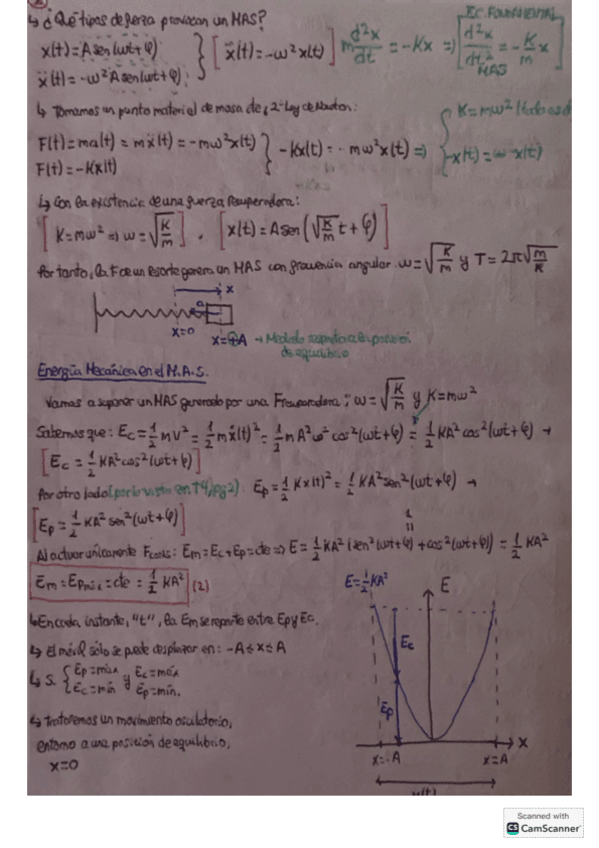 ↳ ¿Qué tipos de fuerza provocan un MAS?
x(t) = A sen(ωt+φ)
ẍ(t) = -ω² A sen(ωt+φ)
[ẍ(t) = -ω² x(t)]
m d²x/dt = -Kx ⇒ [d²x/dt² = -K/m x]
EC. FUNDAMENTAL
MAS
↳ Tomamos un punto material de masa de, 2ª Ley de Newton:
F(t) = ma(t) = mẍ(t) = -mω²x(t)
F(t) = -Kx(t)
-Kx(t) = -mω²x(t) ⇒
K = mω²
↳ Con la existencia de una fuerza recuperadora:
[K = mω² ⇒ ω = √K/m] , [x(t) = A sen(√K/m t + φ)]
Por tanto, la F de un resorte genera un MAS con frecuencia angular ω = √K/m y T = 2π√m/K
x
x=0
x=⊕A → Medido respecto a la posición
de equilibrio
Energía Mecánica en el M.A.S.
Vamos a suponer un MAS generado por una Frecuperadora; ω = √K/m y K = mω²
Sabemos que: Ec = 1/2 mv² = 1/2 mẋ(t)² = 1/2 mA²ω² cos²(ωt+φ) = 1/2 KA² cos²(ωt+φ) →
[Ec = 1/2 KA² cos²(ωt+φ)]
Por otro lado (por lo visto en T4, pg2): Ep = 1/2 Kx(t)² = 1/2 KA² sen²(ωt+φ) →
[Ep = 1/2 KA² sen²(ωt+φ)]
1
Al actuar únicamente Fcons: Em = Ec + Ep = cte ⇒ E = 1/2 KA² (sen²(ωt+φ) + cos²(ωt+φ)) = 1/2 KA²
Em = Epmáx = cte = 1/2 KA² (2)
↳ En cada instante, "t", la Em se reparte entre Ep y Ec.
↳ El móvil sólo se puede desplazar en: -A ≤ x ≤ A
↳ Si {Ep = máx
Ec = mín y {Ec = máx
Ep = mín.
↳ Trataremos un movimiento oscilatorio,
entorno a una posición de equilibrio,
x=0
E = 1/2 KA²
E
Ec
Ep
x
x=-A
x=A
x(t)
Scanned with
CS CamScanner